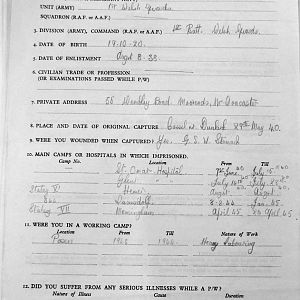 UNIT (ARMY) 1st Welsh Guards
SQUADRON (R.A.F. or A.A.F.)
3. DIVISION (ARMY), COMMAND (R.A.F. or A.A.F.) 1st Batt. Welsh Guards.
4. DATE OF BIRTH 19.10.20.
5. DATE OF ENLISTMENT Aug 8.38.
6. CIVILIAN TRADE OR PROFESSION
(OR EXAMINATIONS PASSED WHILE P/W)
7. PRIVATE ADDRESS 55 Road, Moorends, Nr Doncaster
8. PLACE AND DATE OF ORIGINAL CAPTURE Cassel nr Dunkirk 29th May 40.
9. WERE YOU WOUNDED WHEN CAPTURED? Yes. G.S.W. Stomach
10. MAIN CAMPS OR HOSPITALS IN WHICH IMPRISONED.
Camp No. Location From Till
St Omer Hospital June 40 July
Ghent July
40
Stalag
344 Lamsdorf 8.2.44 Jan. 45.
Stalag VII April 45 April 45.
11. WERE YOU IN A WORKING CAMP?
Location From Till Nature of Work
Posen Heavy Labouring
12. DID YOU SUFFER FROM ANY SERIOUS ILLNESSES WHILE A P/W?
Nature of Illness Cause Duration